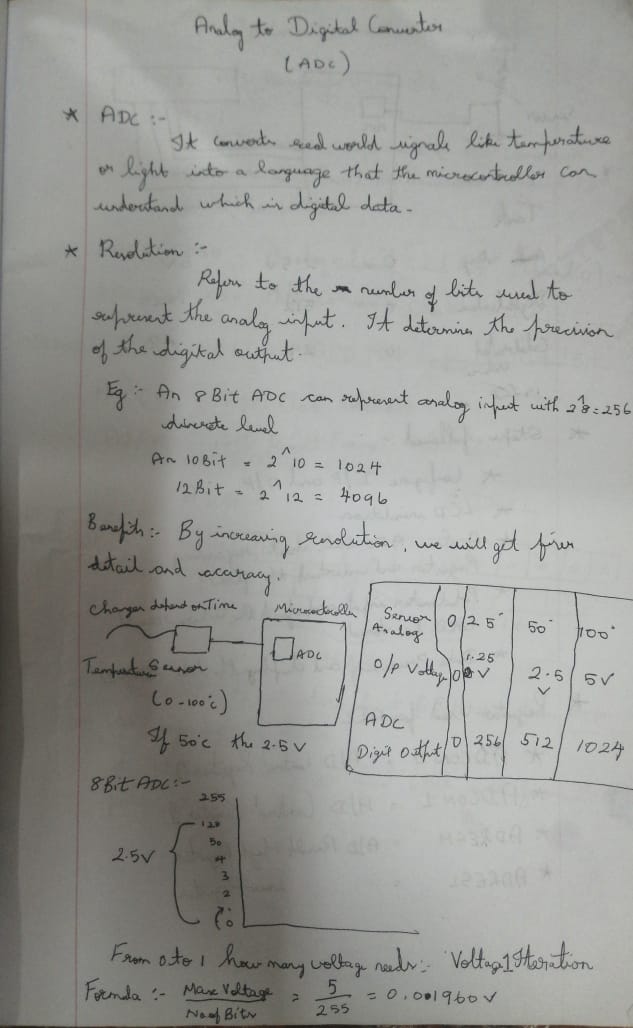 Analog to Digital Converter
(ADC)
* ADC :-
It converts real world signals like temperature
or light into a language that the microcontroller can
understand which is digital data.
* Resolution :-
Refers to the number of bits used to
represent the analog input. It determines the precision
of the digital output.
Eg :- An 8 Bit ADC can represent analog input with 2^8 = 256
discrete level
An 10 Bit = 2^10 = 1024
12 Bit = 2^12 = 4096
Benefits :- By increasing resolution, we will get finer
detail and accuracy.
Changes depend on Time
Microcontroller
ADC
Temperature Sensor
(0-100°c)
If 50°c the 2.5 V
Sensor Analog 0 25° 50° 100°
O/P Voltage 0 1.25 V 2.5 V 5V
ADC
Digit Output 0 256 512 1024
8 Bit ADC :-
255
128
50
4
3
2
1
0
2.5V
From 0 to 1 how many voltage needs :- Voltage 1 Iteration
Formula :- Max Voltage / No of Bits = 5 / 255 = 0.001960 V